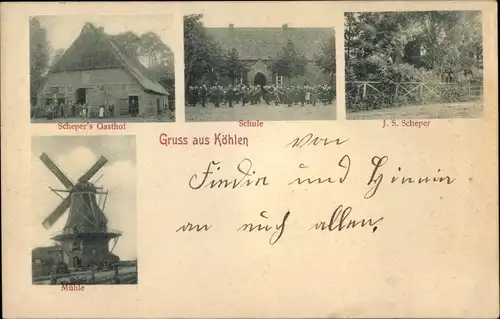 Scheper's Gasthof
Schule
J. S. Scheper
Gruss aus Köhlen
Von
und
an euch allen.
Mühle